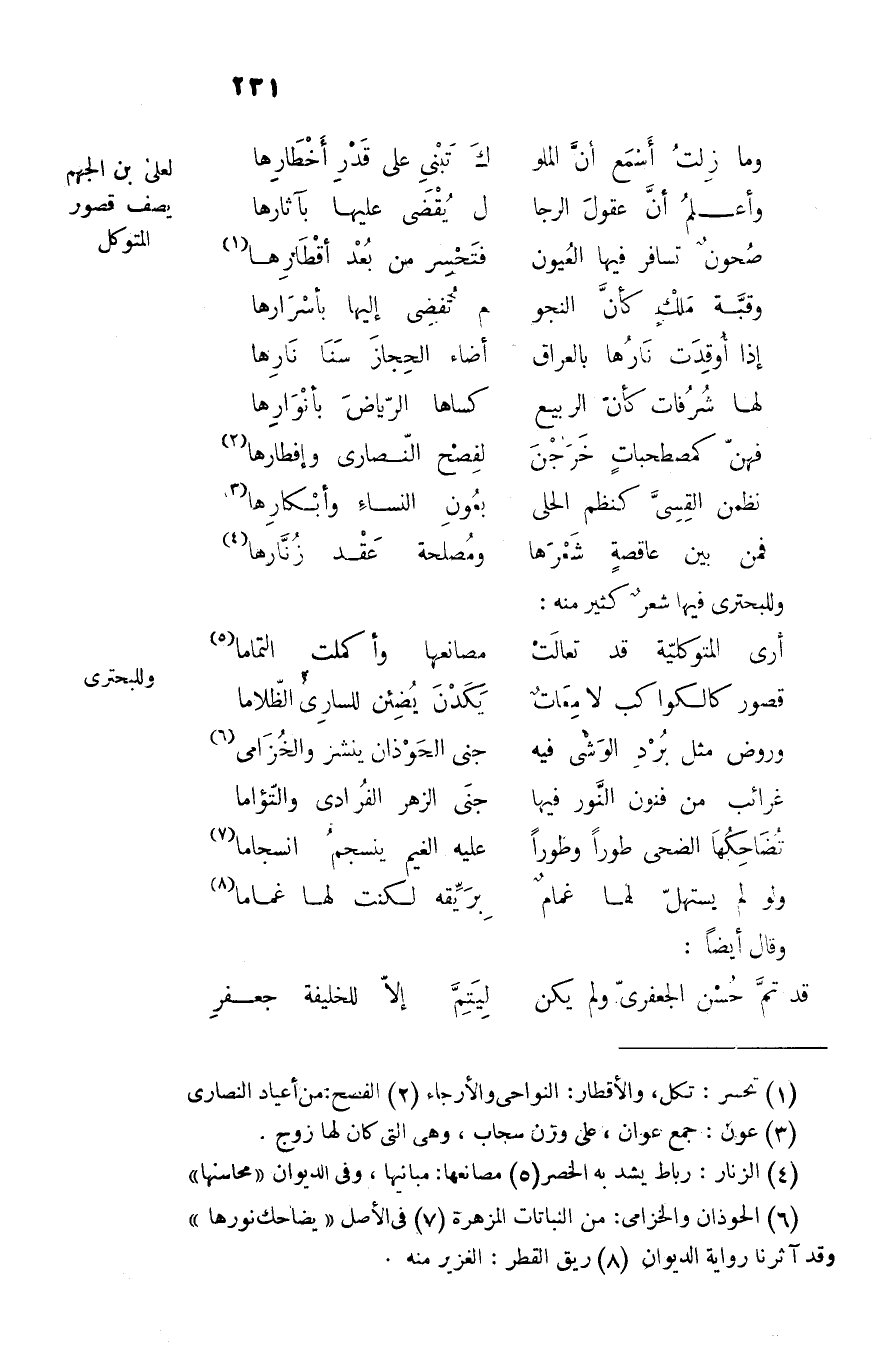 ٢٣١
وما زلتُ أَسْمَع أنَّ الملو كَ تَبْنِي على قَدْرِ أَخْطَارِها
لعلىّ بن الجهم
يصف قصور
المتوكل
وأعـــلمُ أنَّ عقولَ الرجا ل يُقْضَى عليهـا بآثارها
صُحونٌ تسافر فيها العُيون فتَحْسِر من بُعْد أقْطَارِهـا(١)
وقبَّـة مَلْكٍ كأنَّ النجو م تُفضِى إليها بأسْرَارها
إذا أُوقِدَت نَارُها بالعراق أضاء الحِجازَ سَنَا نَارِها
لهـا شُرُفات كأنّ الربيع كساها الرّياضَ بأنْوَارِها
فهنّ كمصطحباتٍ خَرَجْنَ لفِصْح النّـصارى وإفطارها(٢)
نظمن القِسِىَّ كنظم الحلى بعُونِ النسـاءِ وأبْـكارِها(٣)
فمن بين عاقصةٍ شَعْرَها ومُصلحة عَقْـد زُنَّارها(٤)
وللبحترى فيها شعرٌ كثير منه :
أرى المتوكليّة قد تعالَتْ مصانعها وأكملت التماما(٥)
وللبحترى
قصور كالـكواكب لامِعَاتٌ يَكَدْنَ يُضِئن للسارِىُ الظّلاما
وروض مثل بُرْدِ الوَشْى فيه جنى الحَوْذان ينشز والخُزَامى(٦)
غرائب من فنون النَّور فيها جنَى الزهر الفُرادى والتّؤاما
تُضَاحِكُهَا الضحى طوراً وطوراً عليه الغيم ينسجمُ انسجاما(٧)
ولو لم يستهلّ لهـا غمامٌ بِرَيِّقه لـكنت لهـا غمـاما(٨)
وقال أيضاً :
قد تمَّ حُسْن الجعفرىّ ولم يكن لِيَتِمَّ إلاّ للخليفة جعـفرِ
(١) تحسر : تكل، والأقطار: النواحى والأرجاء (٢) الفسح:من أعياد النصارى
(٣) عون : جمع عوان ، على وزن سحاب ، وهى التى كان لها زوج .
(٤) الزنار : رباط يشد به الخصر(٥) مصانعها: مبانيها ، وفى الديوان «محاسنها»
(٦) الحوذان والخزامى: من النباتات المزهرة (٧) فى الأصل « يضاحك نورها »
وقد آثرنا رواية الديوان (٨) ريق القطر : الغزير منه .